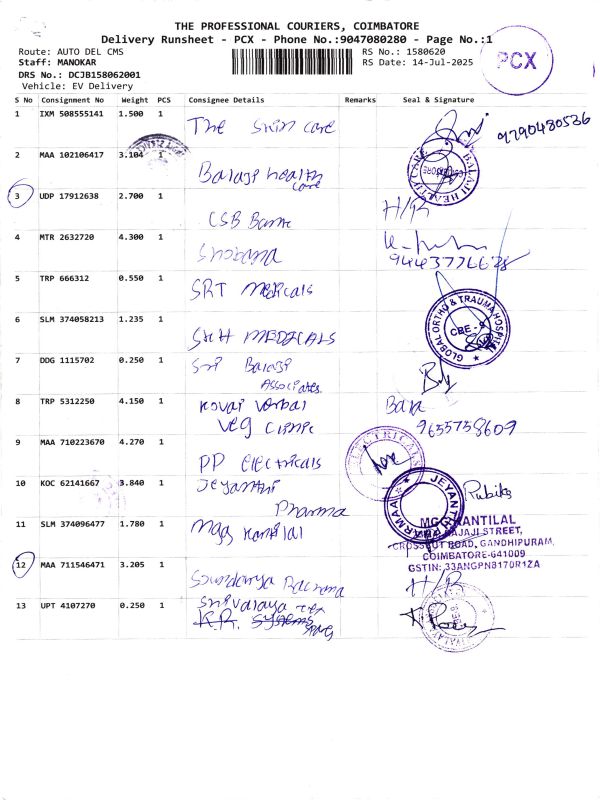 THE PROFESSIONAL COURIERS, COIMBATORE
Delivery Runsheet - PCX - Phone No.:9047080280 - Page No.:1
Route: AUTO DEL CMS
RS No.: 1580620
Staff: MANOKAR
RS Date: 14-Jul-2025
DRS No.: DCJB158062001
Vehicle: EV Delivery
PCX
S No Consignment No Weight PCS Consignee Details Remarks Seal & Signature
1 IXM 508555141 1.500 1 The Skin care 9790480536
2 MAA 102106417 3.104 1 Balaji health care
BALAJI HEALTH CARE
3 UDP 17912638 2.700 1 CSB Bank H/R
4 MTR 2632720 4.300 1 Shobana
9443776628
5 TRP 666312 0.550 1 SRT Medicals
6 SLM 374058213 1.235 1 SKH MEDICALS
GLOBAL ORTHO & TRAUMA HOSPITAL
CBE - 9
7 DDG 1115702 0.250 1 Sri Balaji
Associates
8 TRP 5312250 4.150 1 Kovai Verbal Bala
Veg Clinic 9655758609
9 MAA 710223670 4.270 1 PP Electricals
ELECTRICALS
10 KOC 62141667 3.840 1 Jeyanthi
Pharma
JEYANTHI PHARMAA
11 SLM 374096477 1.780 1 Mgg Kantilal
KANTILAL
RAJAJI STREET,
CROSSCUT ROAD, GANDHIPURAM,
COIMBATORE-641009
GSTIN: 33ANGPN8170R1ZA
12 MAA 711546471 3.205 1 Soundarya H/R
13 UPT 4107270 0.250 1 Srivalaya Tex
K.R. Systems